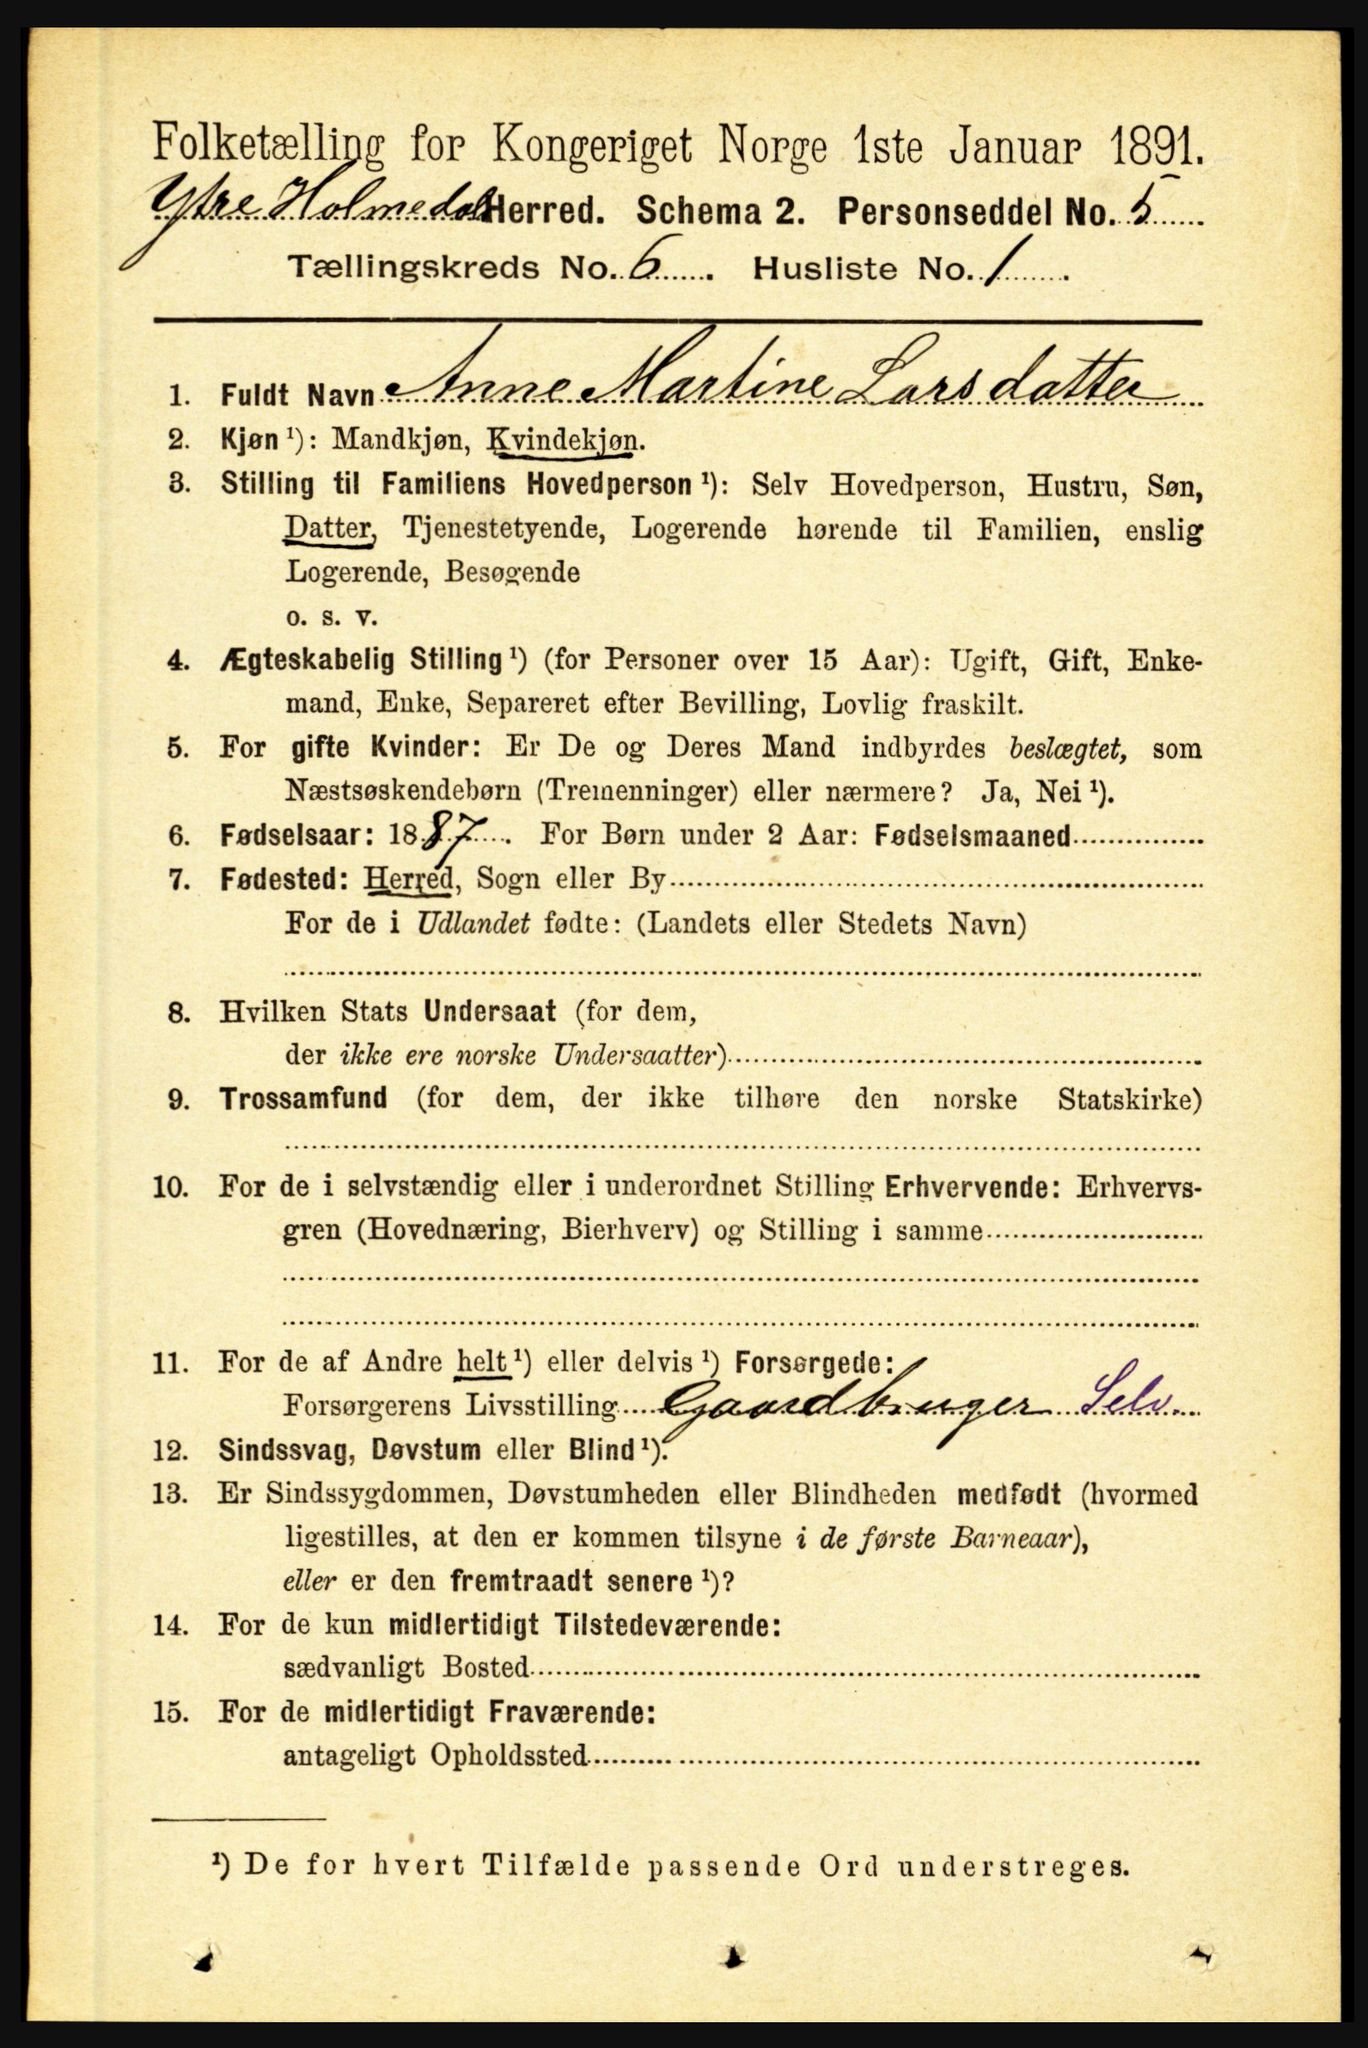 Folketælling for Kongeriget Norge 1ste Januar 1891.
Ytre Holmedal Herred. Schema 2. Personseddel No. 5
Tællingskreds No. 6. Husliste No. 1.
1. Fuldt Navn Anne Martine Larsdatter
2. Kjøn ¹): Mandkjøn, Kvindekjøn.
3. Stilling til Familiens Hovedperson ¹): Selv Hovedperson, Hustru, Søn,
Datter, Tjenestetyende, Logerende hørende til Familien, enslig
Logerende, Besøgende
o. s. v.
4. Ægteskabelig Stilling ¹) (for Personer over 15 Aar): Ugift, Gift, Enke-
mand, Enke, Separeret efter Bevilling, Lovlig fraskilt.
5. For gifte Kvinder: Er De og Deres Mand indbyrdes beslægtet, som
Næstsøskendebørn (Tremenninger) eller nærmere? Ja, Nei ¹).
6. Fødselsaar: 1887. For Børn under 2 Aar: Fødselsmaaned
7. Fødested: Herred, Sogn eller By
For de i Udlandet fødte: (Landets eller Stedets Navn)
8. Hvilken Stats Undersaat (for dem,
der ikke ere norske Undersaatter)
9. Trossamfund (for dem, der ikke tilhøre den norske Statskirke)
10. For de i selvstændig eller i underordnet Stilling Erhvervende: Erhvervs-
gren (Hovednæring, Bierhverv) og Stilling i samme
11. For de af Andre helt ¹) eller delvis ¹) Forsørgede:
Forsørgerens Livsstilling Gaardbruger Selv.
12. Sindssvag, Døvstum eller Blind ¹).
13. Er Sindssygdommen, Døvstumheden eller Blindheden medfødt (hvormed
ligestilles, at den er kommen tilsyne i de første Barneaar),
eller er den fremtraadt senere ¹)?
14. For de kun midlertidigt Tilstedeværende:
sædvanligt Bosted
15. For de midlertidigt Fraværende:
antageligt Opholdssted
¹) De for hvert Tilfælde passende Ord understreges.